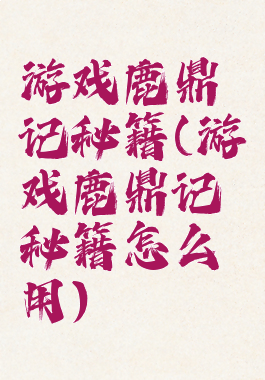 游戏鹿鼎
记秘籍(游
戏鹿鼎记
秘籍怎么
用)